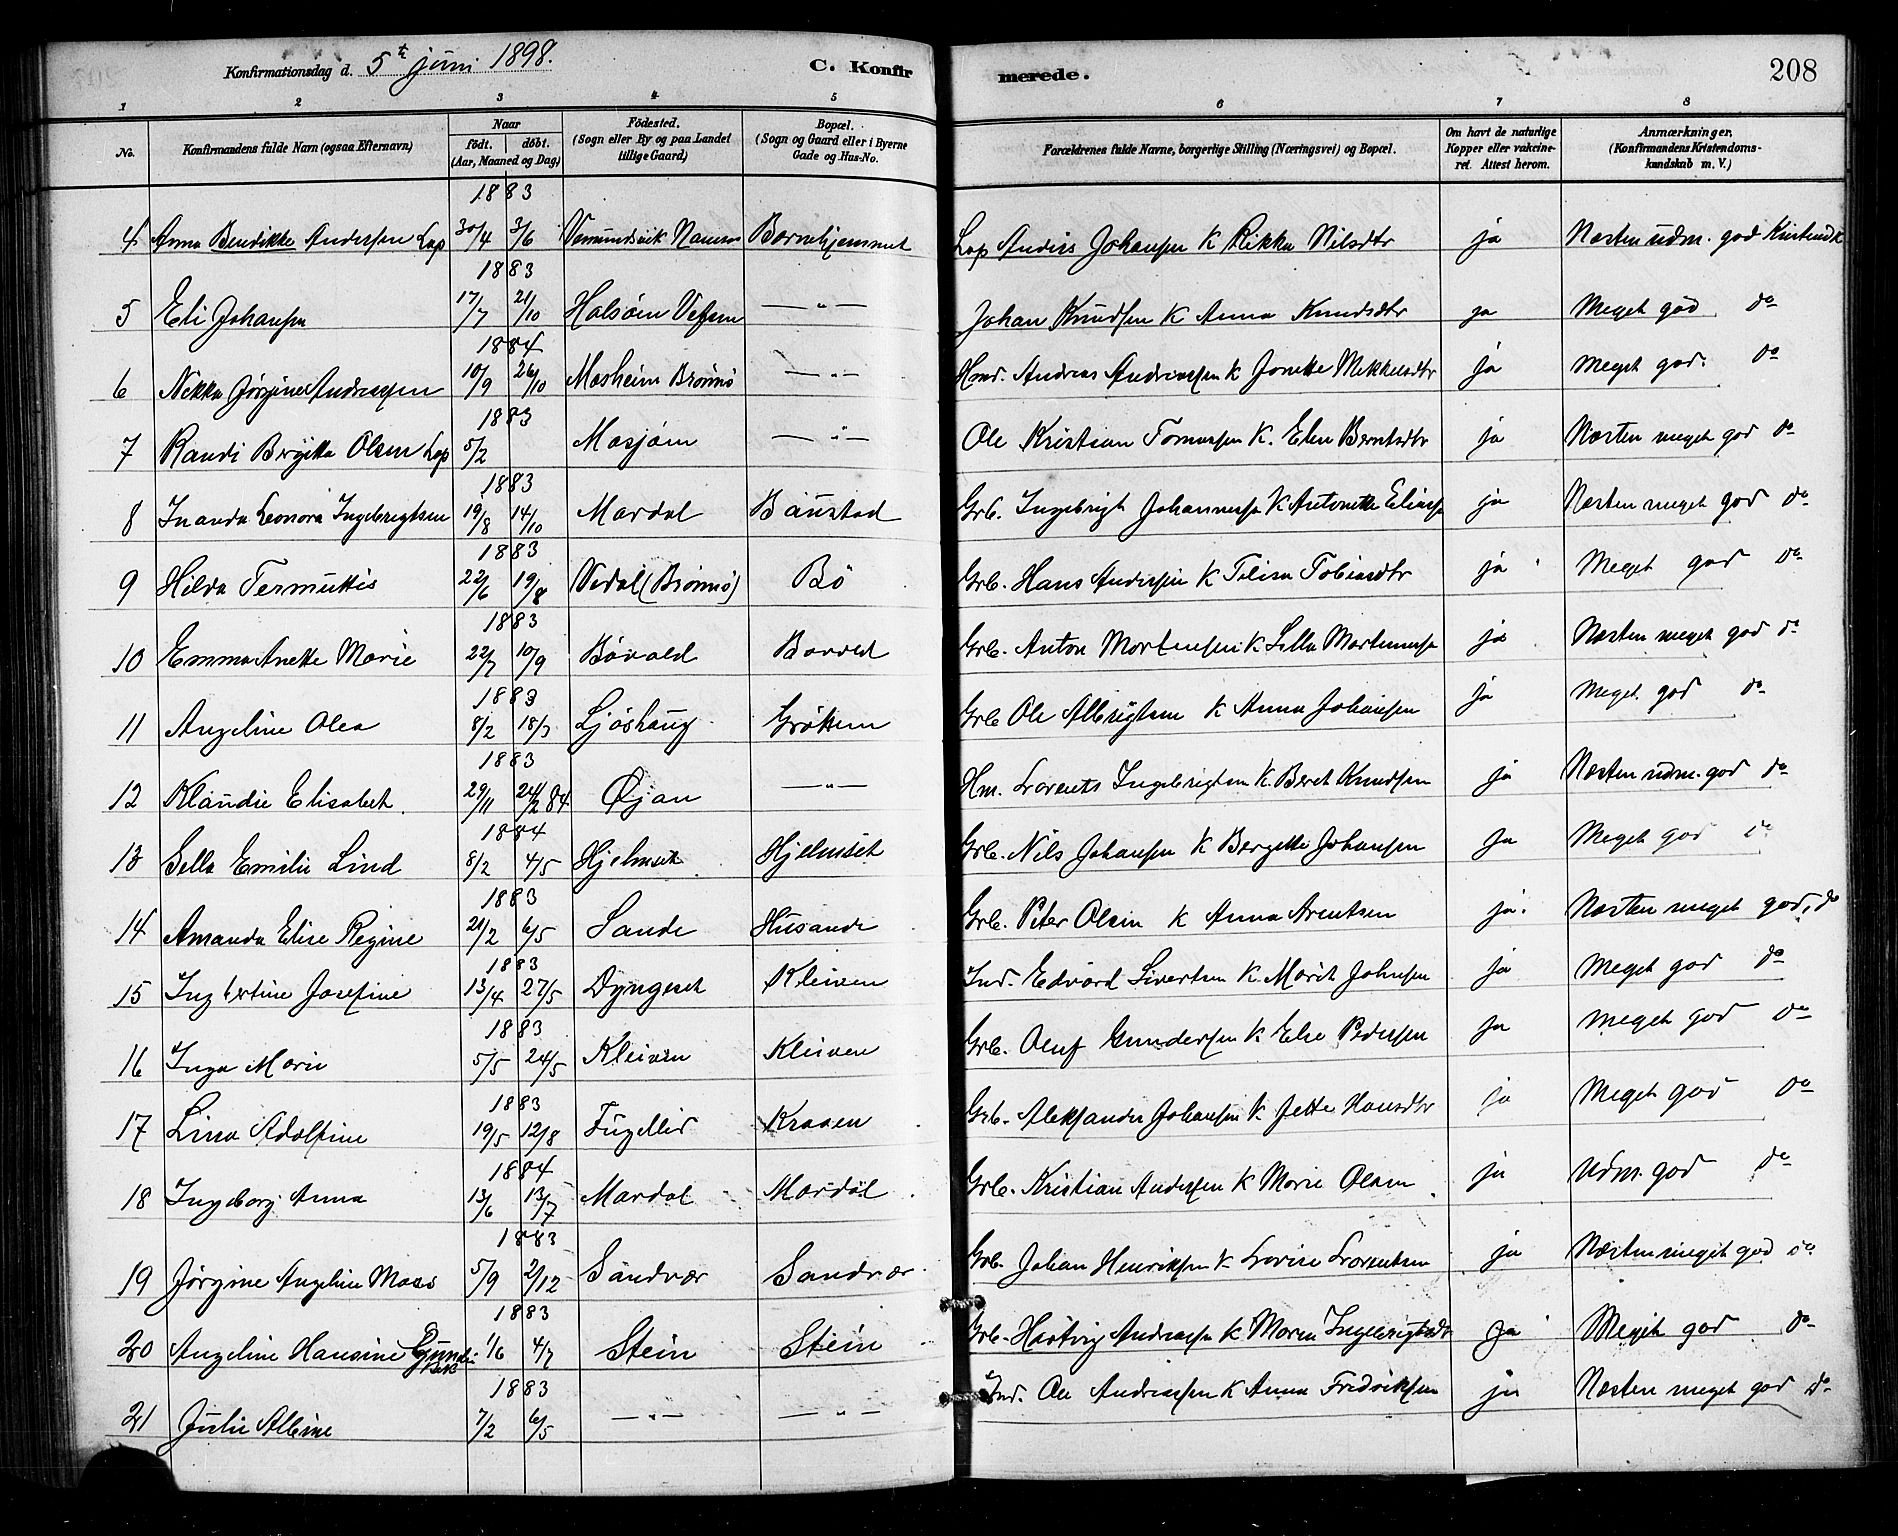 Konfirmationsdag d. 5te juni 1898. C. Konfirmerede. 208
1 2 3 4 5 6 7 8
No. Konfirmandens fulde Navn (ogsaa Efternavn) Naar født. døbt. (Aar, Maaned og Dag) Fødested. (Sogn eller By og paa Landet tillige Gaard) Bopæl. (Sogn og Gaard eller i Byerne Gade og Hus-No. Forældrenes fulde Navne, borgerlige Stilling (Næringsvei) og Bopæl. Om havt de naturlige Kopper eller vaccineret. Attest herom. Anmærkninger. (Konfirmandens Kristendomskundskab m. V.)
1883
4 Anna Bendikke Andersen Lap 30/4 3/6 Vemundsvik Namsos Barnehjemmet Lap Anders Johansen K Rikka Nilsdtr ja Næsten udm. god Kristendk
1883
5 Eli Johansen 17/7 21/10 Halsøen Vefsen — " — Johan Knudsen K Anna Knudsdtr ja Meget god do
1884
6 Nikka Jørgine Andreassen 10/9 26/10 Mosheim Brønnø — " — Hmd. Andreas Andreassen K Jonette Mekkelsdtr ja Meget god. do
1883
7 Randi Birgitta Olsen Lap 5/2 Mosjøen — " — Ole Kristian Tomassen K. Elen Berntsdtr ja Næsten meget god do
1883
8 Inanda Leonora Ingebrigtsen 19/8 14/10 Mardal Baustad Grb. Ingebrigt Johannesen K Antonette Eliass ja Næsten meget god do
1883
9 Hilda Termuttis 22/6 19/8 Vedal (Brønnø) Bø Grb. Hans Andersen K Tolina Tobiasdtr ja Meget god do
1883
10 Emma Anette Marie 22/7 10/9 Bøvald Bøvald Grb. Anton Mortensen K Lella Mortensen ja Næsten meget god do
1883
11 Angeline Olea 8/2 18/3 Ljøshaug Grøttem Grb Ole Albrigtsen K Anna Johansen ja Meget god do
1883
12 Klaudie Elisabet. 29/11 24/2 84 Øjan — " — Hm. Lorents Ingebrigtsen K. Beret Knudsen ja Næsten udm. god do
1884
13 Sella Emilie Lind 8/2 4/5 Hjelmset Hjelmset Grb. Nils Johansen K Bergette Johansen ja Meget god do
1883
14 Amanda Elise Regine 21/2 6/5 Sande Husande Grb. Peter Olsen K Anna Arentsen ja. Næsten meget god, do
1883
15 Ingbertine Josefine 13/4 27/5 Dyngeset Kleiven Ind. Edvard Sivertsen K. Marit Johnsen ja Meget god do
1883
16 Inga Marie 5/5 24/5 Kleiven Kleiven Grb. Oluf Gundersen K Else Pedersen ja Meget god do
1883
17 Lina Adolfine 19/5 12/8 Fugellid Kraaen Grb. Aleksander Johansen K Jette Hansdtr ja Meget god do
1884
18 Ingeborg Anna 13/6 13/7 Mardal Mardal Grb. Kristian Andersen K Marie Olsen ja Udm. god do
1883
19 Jørgine Angeline Maas 5/9 2/12 Sandvær Sandvær Grb. Johan Henriksen K Lovise Lorentsen ja Næsten meget god do
1883
20 Angeline Hansine 1/6 4/7 Stein Stein Grb. Hartvig Andreassen K Maren Ingebrigtsdtr ja Meget god do
1883
21 Julie Albine 7/2 6/5 — " — — " — Ind. Ole Andreassen K Anna Fredriksen ja Næsten meget god do